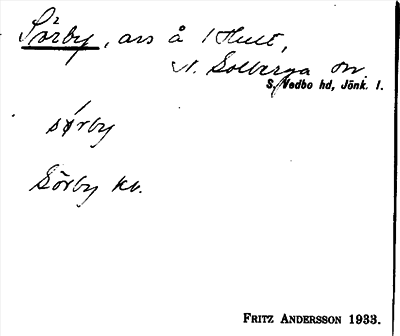 Sörby, avs å 1 Hult,
N. Solberga sn,
S. Vedbo hd, Jönk. l.
sørby
Sörby kv.
FRITZ ANDERSSON 1933.